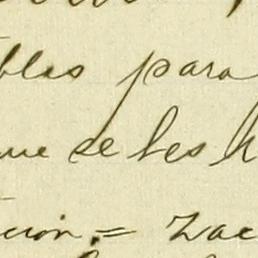 bles para
que se les h
ción. = Zac